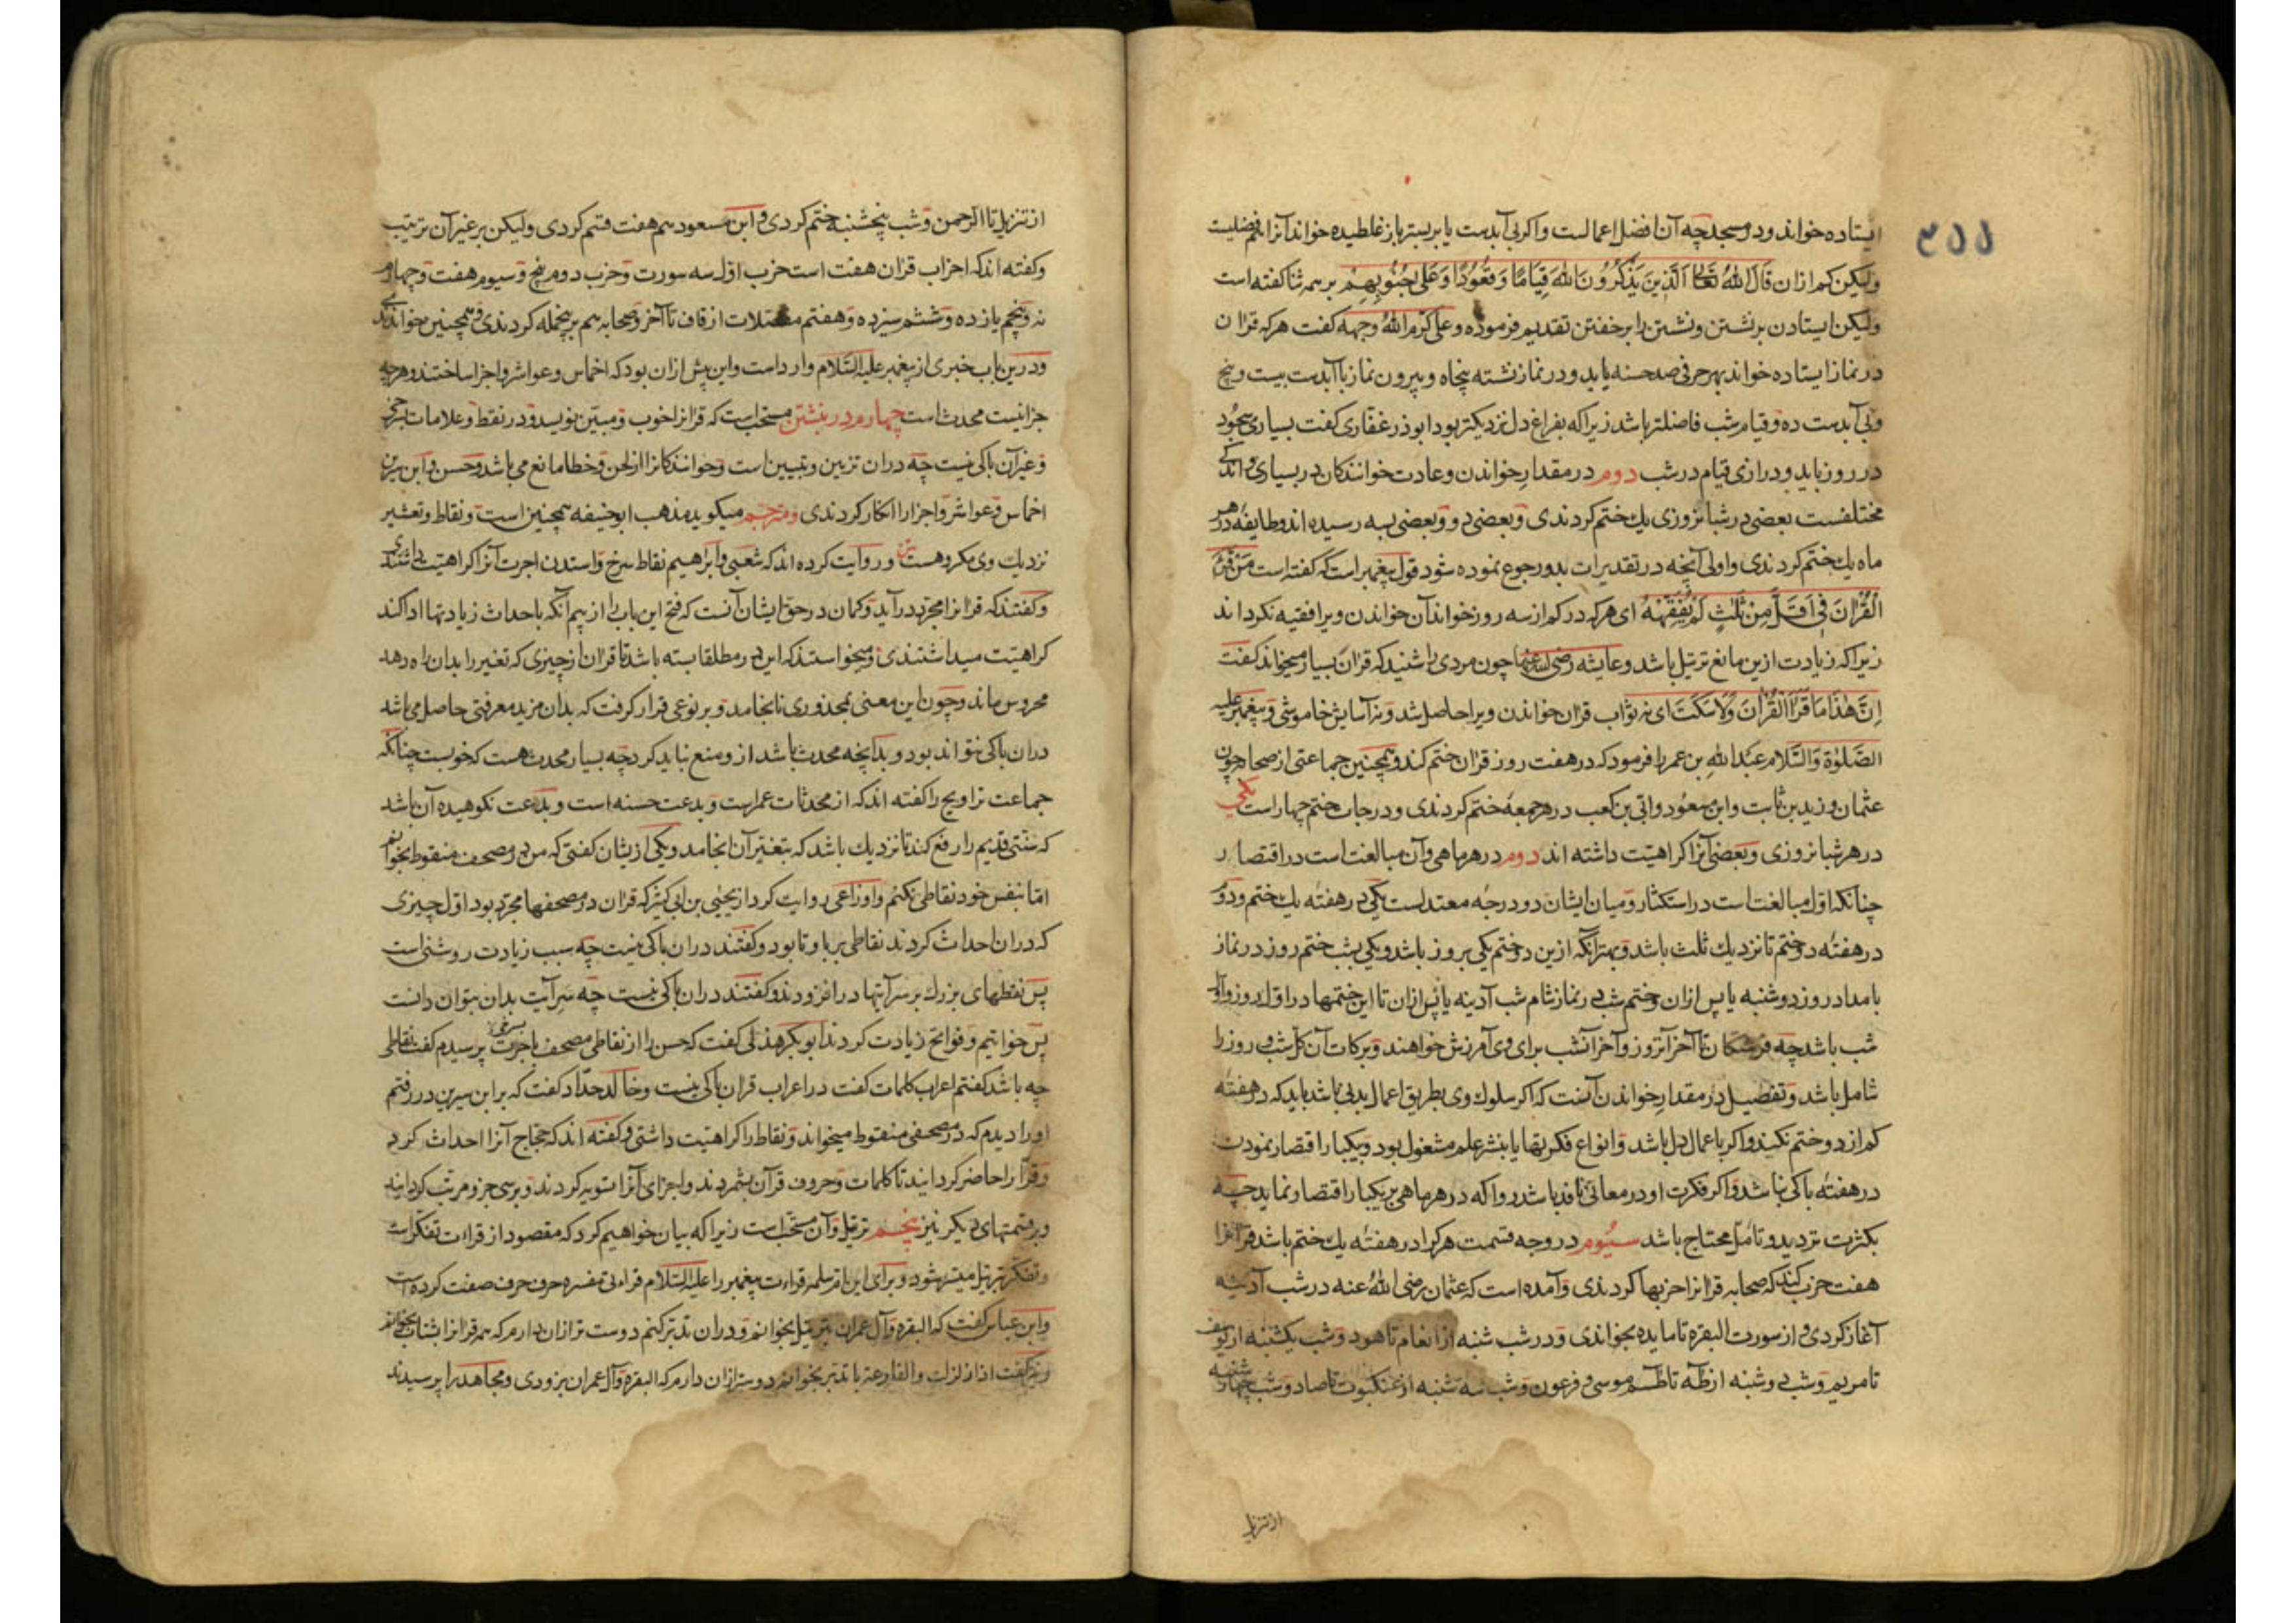 ۳۵۵
ایستاده خواند و در مسجد چه آن افضل اعمالست و اکر بی آبدست یا بر بستر باز غلطیده خواند آنرا هم فضلیست
ولیکن کم از ان قَالَ اللهُ تَعَالَى اَلَّذِينَ يَذْكُرُونَ اللهَ قِيَامًا وَقُعُودًا وَعَلَى جُنُوبِهِمْ بر همه ثنا کفته است
ولیکن ایستادن بر نشستن و نشستن را بر خفتن تقدیم فرموده و علی کرّم اللهُ وجهه کفت هر که قرآن
در نماز ایستاده خواند بهر حرفی صد حسنه یابد و در نماز نشسته پنجاه و بیرون نماز با آبدست بیست و پنج
و بی آبدست ده و قیام شب فاضلتر باشد زیرا که بفراغ دل نزدیکتر بود ابو ذر غفاری کفت بسیاری سجُود
در روز باید و درازی قیام در شب دوم در مقدار خواندن و عادت خوانندکان در بسیاری و اندکی
مختلفست بعضی در شبانروزی یک ختم کردندی و بعضی دو و بعضی بسه رسیده اند و طایفه در هر
ماه یک ختم کردندی و اولی آنچه در تقدیرات بدو رجوع نموده شود قول پیغمبر است که کفته است مَنْ قَرَأَ
الْقُرْانَ فِي اَقَلَّ مِنْ ثَلٰثٍ لَمْ يَفْقَهْهُ ای هر که در کم از سه روز خواند آن خواندن ویرا فقیه نکرداند
زیرا که زیادت ازین مانع ترتیل باشد و عایشه رضی الله عنها چون مردی را شنید که قرآن بسیار میخواند کفت
اِنَّ هٰذَا مَا قَرَأَ الْقُرْانَ وَلَا سَكَتَ ای نه ثواب قرآن خواندن ویرا حاصل شد و نه آسایش خاموشی و پیغمبر علیه
الصَّلوٰة وَالسَّلام عبْد اللهِ بن عمر را فرمود که در هفت روز قرآن ختم کند و همچنین جماعتی از صحابه چون
عثمان و زید بن ثابت و ابن مسعُود و ابَی بن کعب در هر جمعه ختم کردندی و درجات ختم چهار است یکی
در هر شبانروزی و بعضی آنرا کراهیّت داشته اند دوم در هر ماهی و آن مبالغت است در اقتصار
چنانکه اوّل مبالغت است در استکثار و میان ایشان دو درجه معتدلست یکی در هفته یک ختم و دوُم
در هفته دو ختم تا نزدیک ثلث باشد و بهتر آنکه ازین دو ختم یکی بروز باشد و یکی بشب ختم روز در نماز
بامداد روز دوشنبه یا پس از ان و ختم شب در نماز شام شب آدینه یا پس از ان تا این ختمها در اوّل روز و اوّل
شب باشد چه فرشتکان تا آخر آنروز و آخر آنشب برای وی آمرزش خواهند و برکات آن کلّ شب و روز را
شامل باشد و تفصیل در مقدار خواندن آنست که اکر سلوک وی بطریق اعمال بدنی باشد باید که در هفته
کم از دو ختم نکند و اکر باعمال دل باشد و انواع فکرتها یا بنشر علم مشغول بود و بیکبار اقتصار نمودن
در هفته باکی نباشد و اکر فکرت او در معانی نافذ باشد روا که در هر ماهی بر یکبار اقتصار نماید چه
بکثرت تردید و تأمّل محتاج باشد سیُوم در وجه قسمت هر کرا در هفته یک ختم باشد قرآنرا
هفت حزب کند که صحابه قرآنرا حزبها کردندی و آمده است که عثمان رضی اللهُ عنه در شب آدینه
آغاز کردی و از سورت البقره تا مایده بخواندی و در شب شنبه از انعام تا هود و شب یکشنبه از یوسف
تا مریم و شب دوشنبه از طٓه تا طٓسم موسی و فرعون و شب سه شنبه از عنکبوت تا صاد و شب چهارشنبه
از تنزیل
از تنزیل تا الرحمن و شب پنجشنبه ختم کردی و ابن مسعود هم هفت قسم کردی ولیکن بر غیر آن ترتیب
و کفته اند که احزاب قرآن هفت است حزب اوّل سه سورت و حزب دوم پنج و سیوم هفت و چهارم
نه و پنجم یازده و ششم سیزده و هفتم مفصّلات از قاف تا آخر و صحابه هم برینجمله کردندی و همچنین خواندندی
و درین باب خبری از پیغمبر علیه السَّلام وارد است و این پیش از ان بود که اخماس و عواشر و اجزا ساختند و هر چه
جز اینست محدث است چهارم در نبشتن مستحبّ است که قرآنرا خوب و مبیّن نویسد و در نقط و علامات بسرخی
و غیر آن باکی نیست چه در ان تزیین و تبیین است و خوانندکانرا از لحن و خطا مانع می باشد و حسن و ابن سیرین
اخماس و عواشر و اجزا را انکار کردندی و مترجم میکوید مذهب ابو حنیفه همچنین است و نقاط و تعشیر
نزدیک وی مکروهست و نیز روایت کرده اند که شعبی و ابراهیم نقاط سرخ و استدن اجرت آنرا کراهیّت داشتندی
و کفتند که قرآنرا مجرّد دارید و کمان در حقّ ایشان آنست که فتح این باب را از بیم آنکه باحداث زیادتها ادا کند
کراهیّت میداشتندی و میخواستند که این در مطلقا بسته باشد تا قرآن از چیزی که تغییر را بدان راه دهد
محروس ماند و چون این معنی بمحذوری نانجامد و بر نوعی قرار کرفت که بدان مزید معرفتی حاصل می باشد
در ان باکی نتواند بود و بدانچه محدث باشد از و منع نباید کرد چه بسیار محدث هست که خوبست چنانکه
جماعت تراویح را کفته اند که از محدثات عمر است و بدعت حسنه است و بدعت نکوهیده آن باشد
که سُنّتی قدیم را رفع کند تا نزدیک باشد که بتغییر آن انجامد و یکی ازیشان کفتی که من در مصحف منقوط بخوانم
امّا بنفس خود نقاطی نکنم و اوزاعی روایت کرد از یحیٰی بن ابی کثیر که قرآن در مصحفها مجرّد بود اوّل چیزی
که در ان احداث کردند نقاطی بر با و تا بود و کفتند در ان باکی نیست چه سبب زیادت روشنی است
پس نقطهای بزرک بر سر آیتها در افزودند و کفتند در ان باکی نیست چه سر آیت بدان بتوان دانست
پس خواتیم و فواتح زیادت کردند ابو بکر هذلی کفت که حسن را از نقاطی مصحف باجرت بسرخی پرسیدم کفت نقاطی
چه باشد کفتم اعراب کلمات کفت در اعراب قرآن باکی نیست و خالد حذّاد کفت که بر ابن سیرین در رفتم
او را دیدم که در مصحفی منقوط میخواند و نقاط را کراهیّت داشتی و کفته اند که حجّاج آنرا احداث کرد
و قرّا را حاضر کردانید تا کلمات و حروف قرآن بشمردند و اجزای آنرا تسویه کردند و بر سی جزو مرتّب کردانید
و بر قسمتهای دیکر نیز پنجم ترتیل و آن مستحبّ است زیرا که بیان خواهیم کرد که مقصود از قراءت تفکّر است
و تفکّر بترتیل میسّر شود و برای این امّ سلمه قراءت پیغمبر را علیه السَّلام قراءتی مفسره حرف حرف صفت کرده است
و ابن عبّاس کفت که البقره و آل عمران بترتیل بخوانم و در ان تدبّر کنم دوست تر از ان دارم که همه قرآنرا بشتاب بخوانم
و نیز کفت اذا زلزلت و القارعة با تدبّر بخوانم دوستر از ان دارم که البقره و آل عمران بزودی و مجاهد را پرسیدند